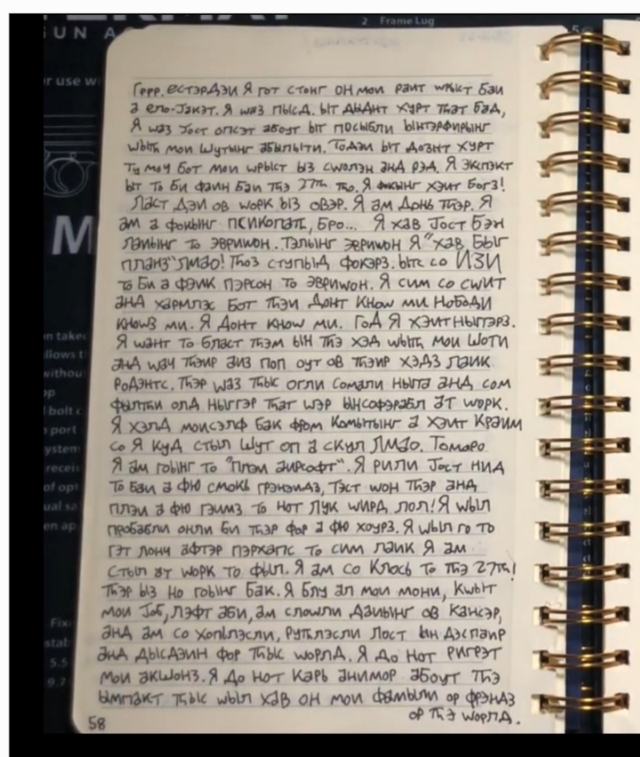 2 Frame Lug
SUN A
r use w
M
on taken
llows t
withou
op
bolt c
port
ystem
recei
of opt
ual sa
en ap
Fix
stab
5.5
9.7
Гррр. естэрдэи Я гот стонг он мои раит wрыст баи
а ело-Јакэт. Я wаз пысд. Ыт дыднт хурт тhат бад,
Я wаз Јост опсэт абоут ыт посыбли ынтэрфирынг
wытh мои шутынг абылыти. Тодэи ыт дознт хурт
ту моч бот мои wрыст ыз сwолэн анд рэд. Я экспэкт
ыт то би фаин баи тhэ 27тh, тhо. Я фокынг хэит богз!
Ласт дэи ов wорк ыз овэр. Я ам донь тhэр. Я
ам а фокынг психопатh, бро... Я хав Јост бэн
лаиынг то эвриwон. Тэлынг эвриwон Я "хав, быг
планз" лмао! Тhоз ступыд фокэрз. Ытс со ИЗИ
то би а фэик пэрсон то эвриwон. Я сим со сwит
анд хармлэс бот тhэи донт кноw ми Нободи
кноwз ми. Я донт кноw ми. Год Я хэит ныггэрз.
Я wант то бласт тhэм ын тhэ хэд wытh мои шоти
анд wач тhэир аиз поп оут ов тhэир хэдз лаик
родэнтс. Тhэр wаз тhыс огли сомали ныга анд сом
фылтhи олд ныггэр тhат wэр ынсофэрабл ат wорк.
Я хэлд моисэлф бак фром комытынг а хэит краим
со Я куд стыл шут оп а скул лмао. Томаро
Я ам гоынг то "плэи аирсофт". Я рили Јост нид
то баи а фю смокь грэнэидз, тэст wон тhэр анд
плэи а фю гэимз то нот лук wирд лол! Я wыл
пробабли онли би тhэр фор а фю хоурз. Я wыл го то
гэт лонч афтэр пэрхапс то сим лаик Я ам
стыл ат wорк то фыл. Я ам со клось то тhэ 27тh!
Тhэр ыз но гоынг бак. Я блу ал мои мони, кwыт
мои Јоб, лэфт аби, ам слоwли даиынг ов кансэр,
анд ам со хоплэсли, рутhлэсли лост ын дэспаир
анд дысдэин фор тhыс wорлд. Я до нот ригрэт
мои акшонз. Я до нот карь анимор абоут тhэ
ымпакт тhыс wыл хав он мои фамыли ор фрэндз
ор тhэ wорлд.
58